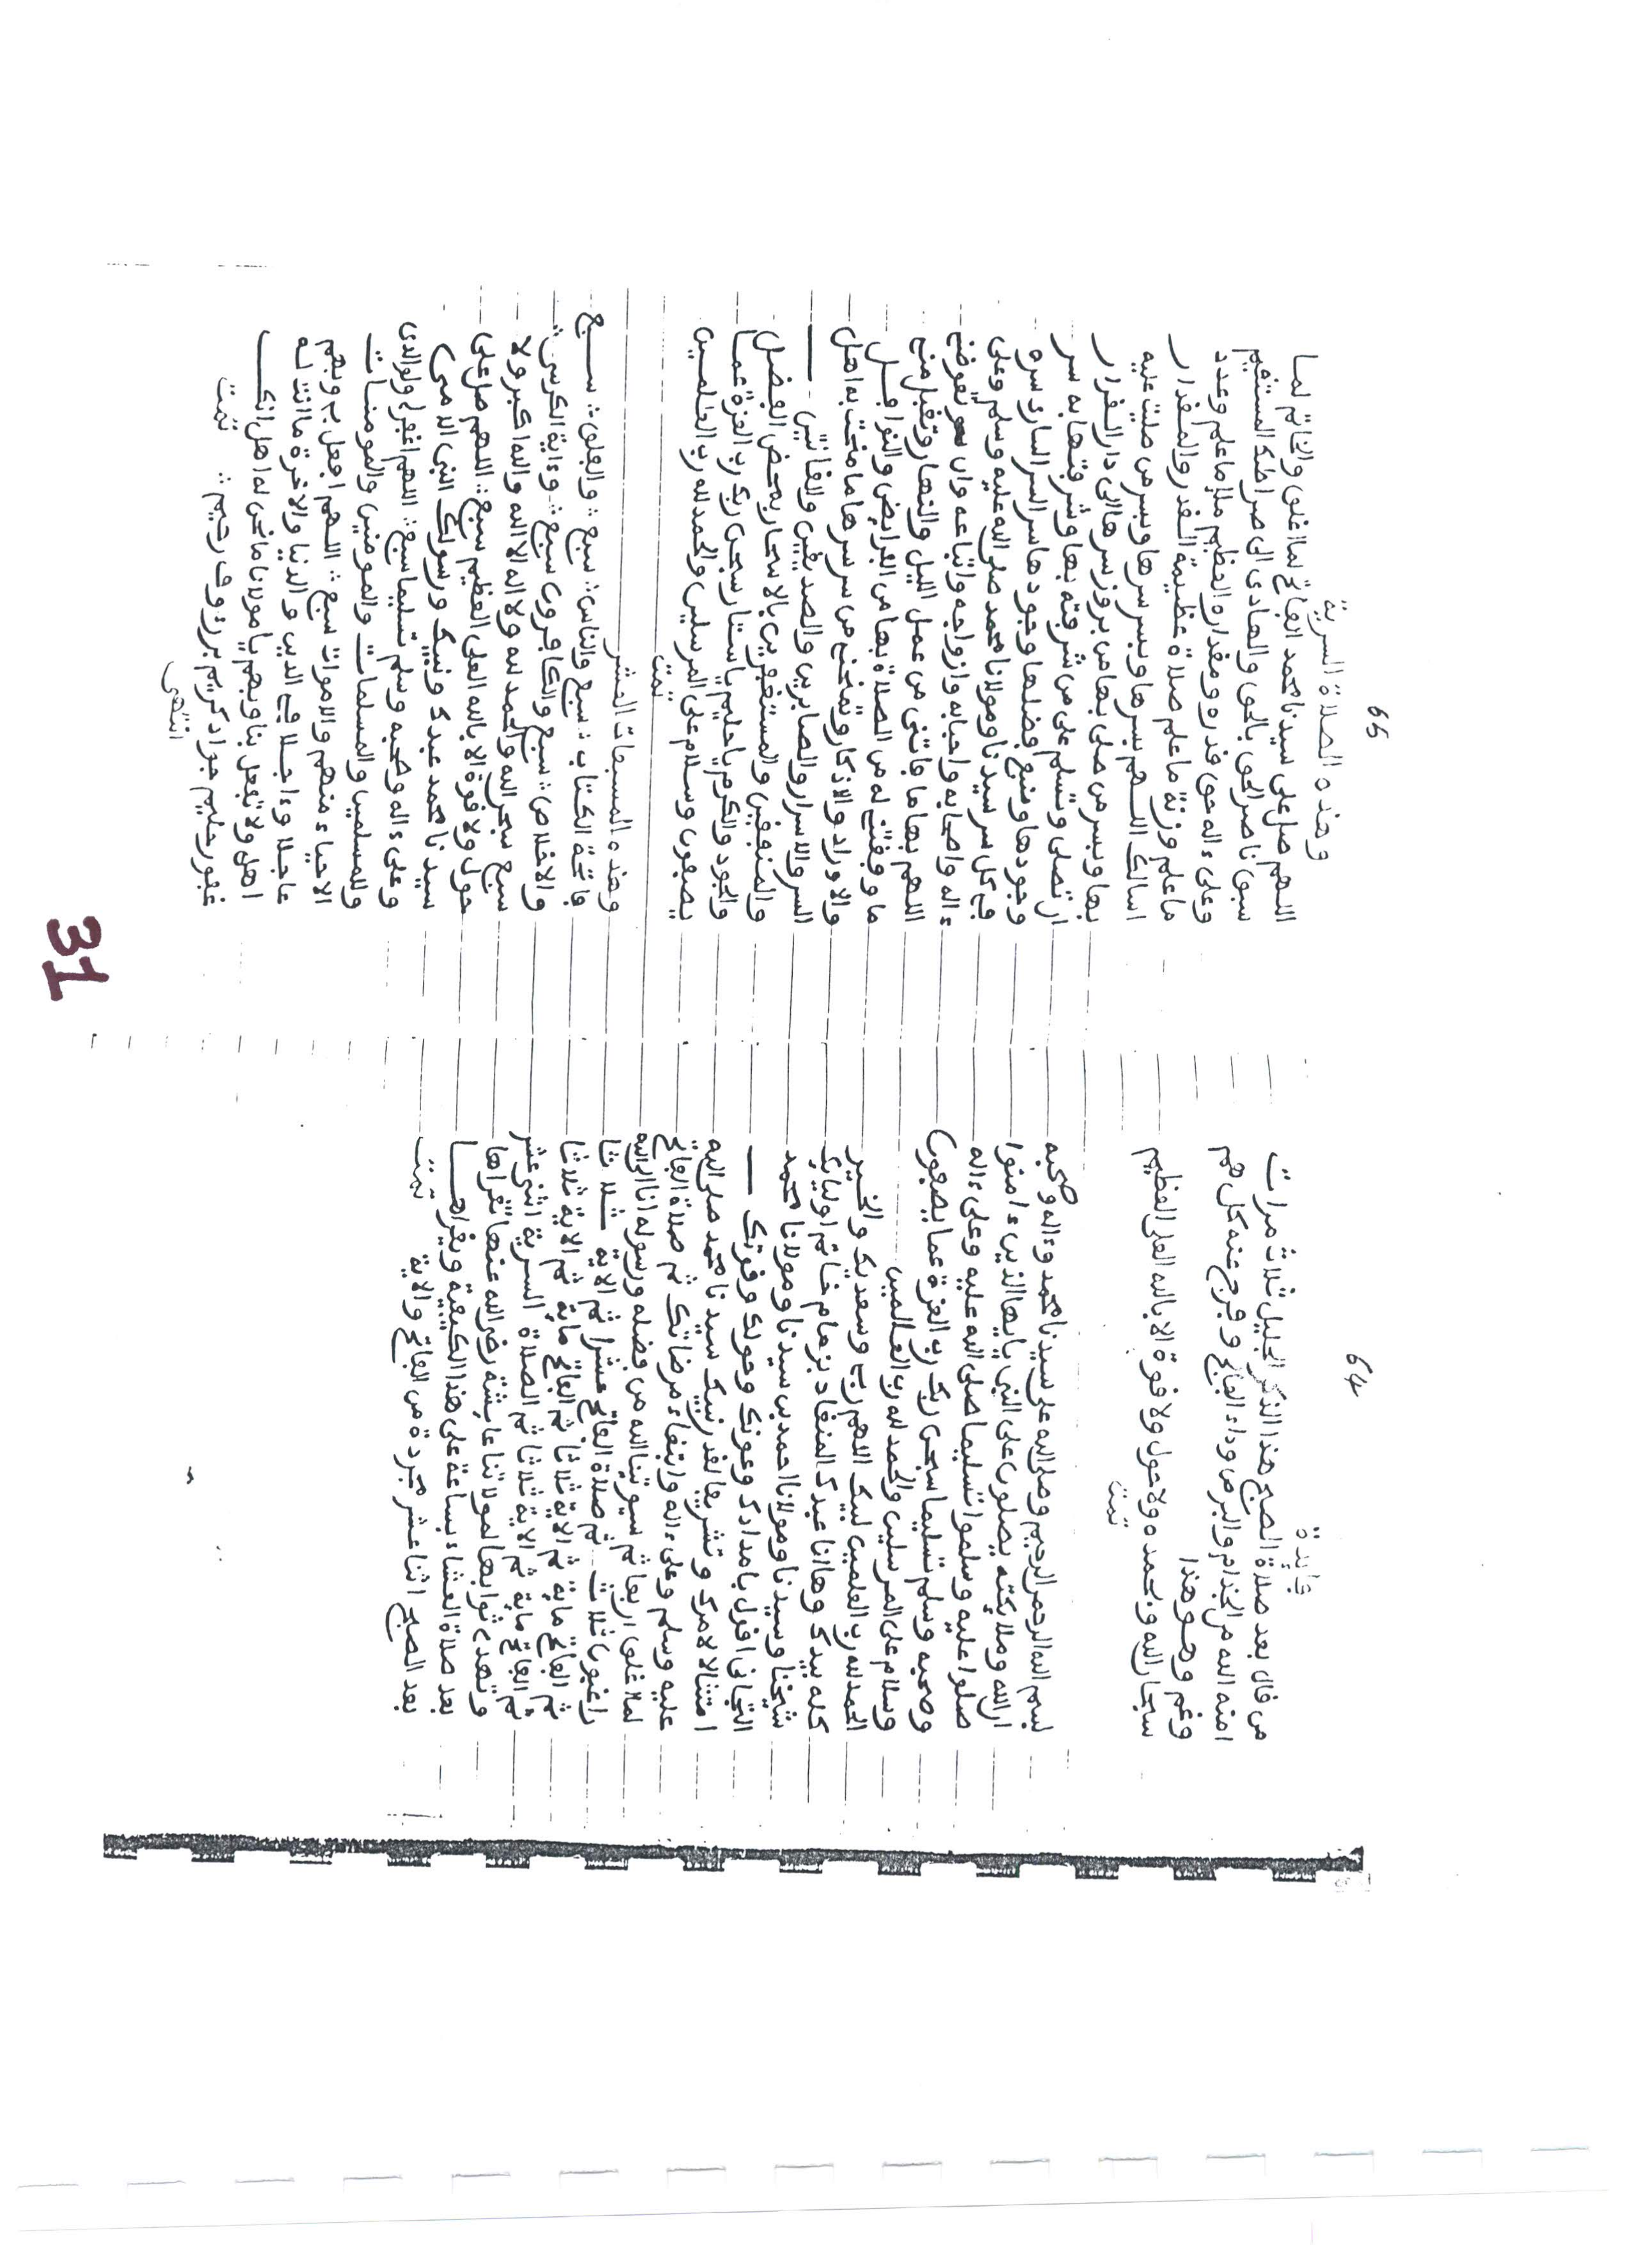 64
فايدة
من قال بعد صلاة الصبح هذا الذكر الجليل ثلاث مرات
امنه الله من الجذام والبرص وداء الفالج وفرج عنه كل هم
وغم وهو هذا
سبحان الله وبحمده ولا حول ولا قوة الا بالله العلى العظيم
تمت
بسم الله الرحمن الرحيم وصلى الله على سيدنا محمد وءاله وصحبه
ان الله وملائكته يصلون على النبى يايها الذين ءامنوا
صلوا عليه وسلموا تسليما صلى الله عليه وعلى ءاله
وصحبه وسلم تسليما سبحن ربك رب العزة عما يصفون
وسلام على المرسلين والحمد لله رب العلمين
الحمد لله رب العلمين لبيك اللهم ربى وسعديك والخير
كله بيدك وها انا عبدك المنقاد بزمام خاتم اوليائك
شيخنا وسيدنا ومولانا احمد بن سيدنا ومولانا محمد
التجانى اقول بامدادك وعونك وحولك وقوتك
امتثالا لامرك وتشريفا لقدر نبيك سيدنا محمد صلى الله
عليه وسلم وعلى ءاله وابتغاء مرضاتك ثم صلاة الفاتح
لما اغلق اربعا ثم سيوتينا الله من فضله ورسوله انا الى الله
راغبون ثلاث ثم صلاة الفاتح عشرا ثم الاية ثلاثا
ثم الفاتح ماية ثم الاية ثلاثا ثم الفاتح ماية ثم الاية ثلاثا
ثم الفاتح ماية ثم الاية ثلاثا ثم الصلاة السرية اثنى عشر
وتهدى ثوابها لمولاتنا عايشة رضى الله عنها تقراها
بعد صلاة العشاء بساعة على هذا الكيفية ويقراهــا
بعد الصبح اثنا عشر مجردة من الفاتح والاية تمت
65
وهذه الصلاة السرية
اللهم صل على سيدنا محمد الفاتح لما اغلق والخاتم لما
سبق ناصر الحق بالحق والهادى الى صراطك المستقيم
وعلى ءاله حق قدره ومقداره العظيم ملا ما علم وعدد
ما علم وزنة ما علم صلاة عظيمة القدر والمقدار
اسالك اللهم بسرها وبسر سرها وبسر من صليت عليه
بها وبسر من صلى بها من بروز سرها الى دار القرار
ان تصلى وتسلم على من شرفته بها وشرفتها به سر
وجودها ومنبع فضلها وجودها سر السر البارز سره
فى كل سر سيدنا ومولانا محمد صلى الله عليه وسلم وعلى
ءاله واصحابه واحبابه وازواجه واتباعه وان تعوضنى
اللهم بها ما فاتنى من عمل الليل والنهار وتقبل منى
ما وفقتنى له من الصلاة بها من الفرايض والنوافــل
والاوراد والاذكار وتمنحنى من سر سرها ما منحت به اهل
السر والاسرار والصابرين والصديقين والقانتين
والمنفقين والمستغفرين بالاسحار بمحض الفضل
والجود والكرم يا حليم يا ستار سبحن ربك رب العزة عما
يصفون وسلام على المرسلين والحمد لله رب العلمين
تمت
وهذه المسبعات العشر
فاتحة الكتاب : سبع والناس : سبع : والفلق : سبع
والاخلاص : سبع والكافرون سبع : وءاية الكرسى :
سبع سبحن الله والحمد لله ولا اله الا الله والله اكبر ولا
حول ولا قوة الا بالله العلى العظيم سبع : اللهم صل على
سيدنا محمد عبدك ونبيك ورسولك النبى الامى
وعلى ءاله وصحبه وسلم تسليما سبع : اللهم اغفر لى ولوالدى
وللمسلمين والمسلمات والمومنين والمومنات
الاحياء منهم والاموات سبع : اللهم افعل بى وبهم
عاجلا وءاجلا فى الدين والدنيا والاخرة ما انت له
اهل ولا تفعل بنا وبهم يا مولانا ما نحن له اهل انك
غفور حليم جواد كريم بر رؤوف رحيم : تمت
انتهى
31